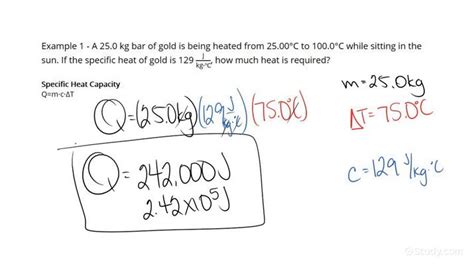 Example 1 - A 25.0 kg bar of gold is being heated from 25.00°C to 100.0°C while sitting in the
sun. If the specific heat of gold is 129 J/kg·°C, how much heat is required?
Specific Heat Capacity
Q=m·c·ΔT
m=25.0kg
Q=(25.0kg)(129 J/kg·°C)(75.0°C)
ΔT=75.0°C
Q=242,000J
2.42×10⁵J
c=129 J/kg·°C
Study.com